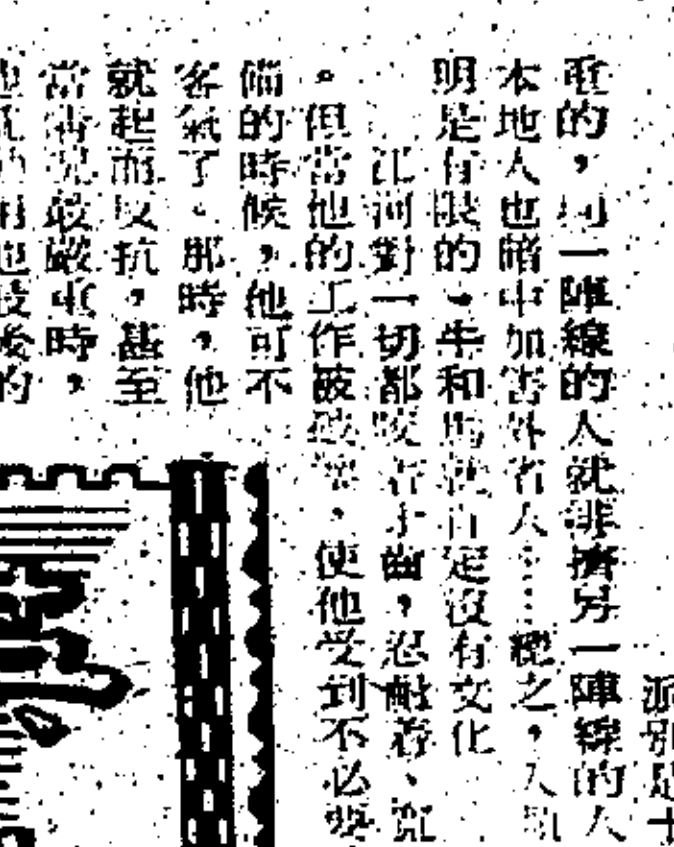 派別是十
重的，同一陣線的人就排擠另一陣線的人
本地人也暗中加害外省人……總之，人
明是有限的。牛和馬就肯定沒有文化
。江河對一切都咬着手曲，忍耐着、寬
但當他的工作被破壞，使他受到不必要
備的時候，他可不
客氣了。那時，他
就起而反抗，甚至
當情況最嚴重時，
後的